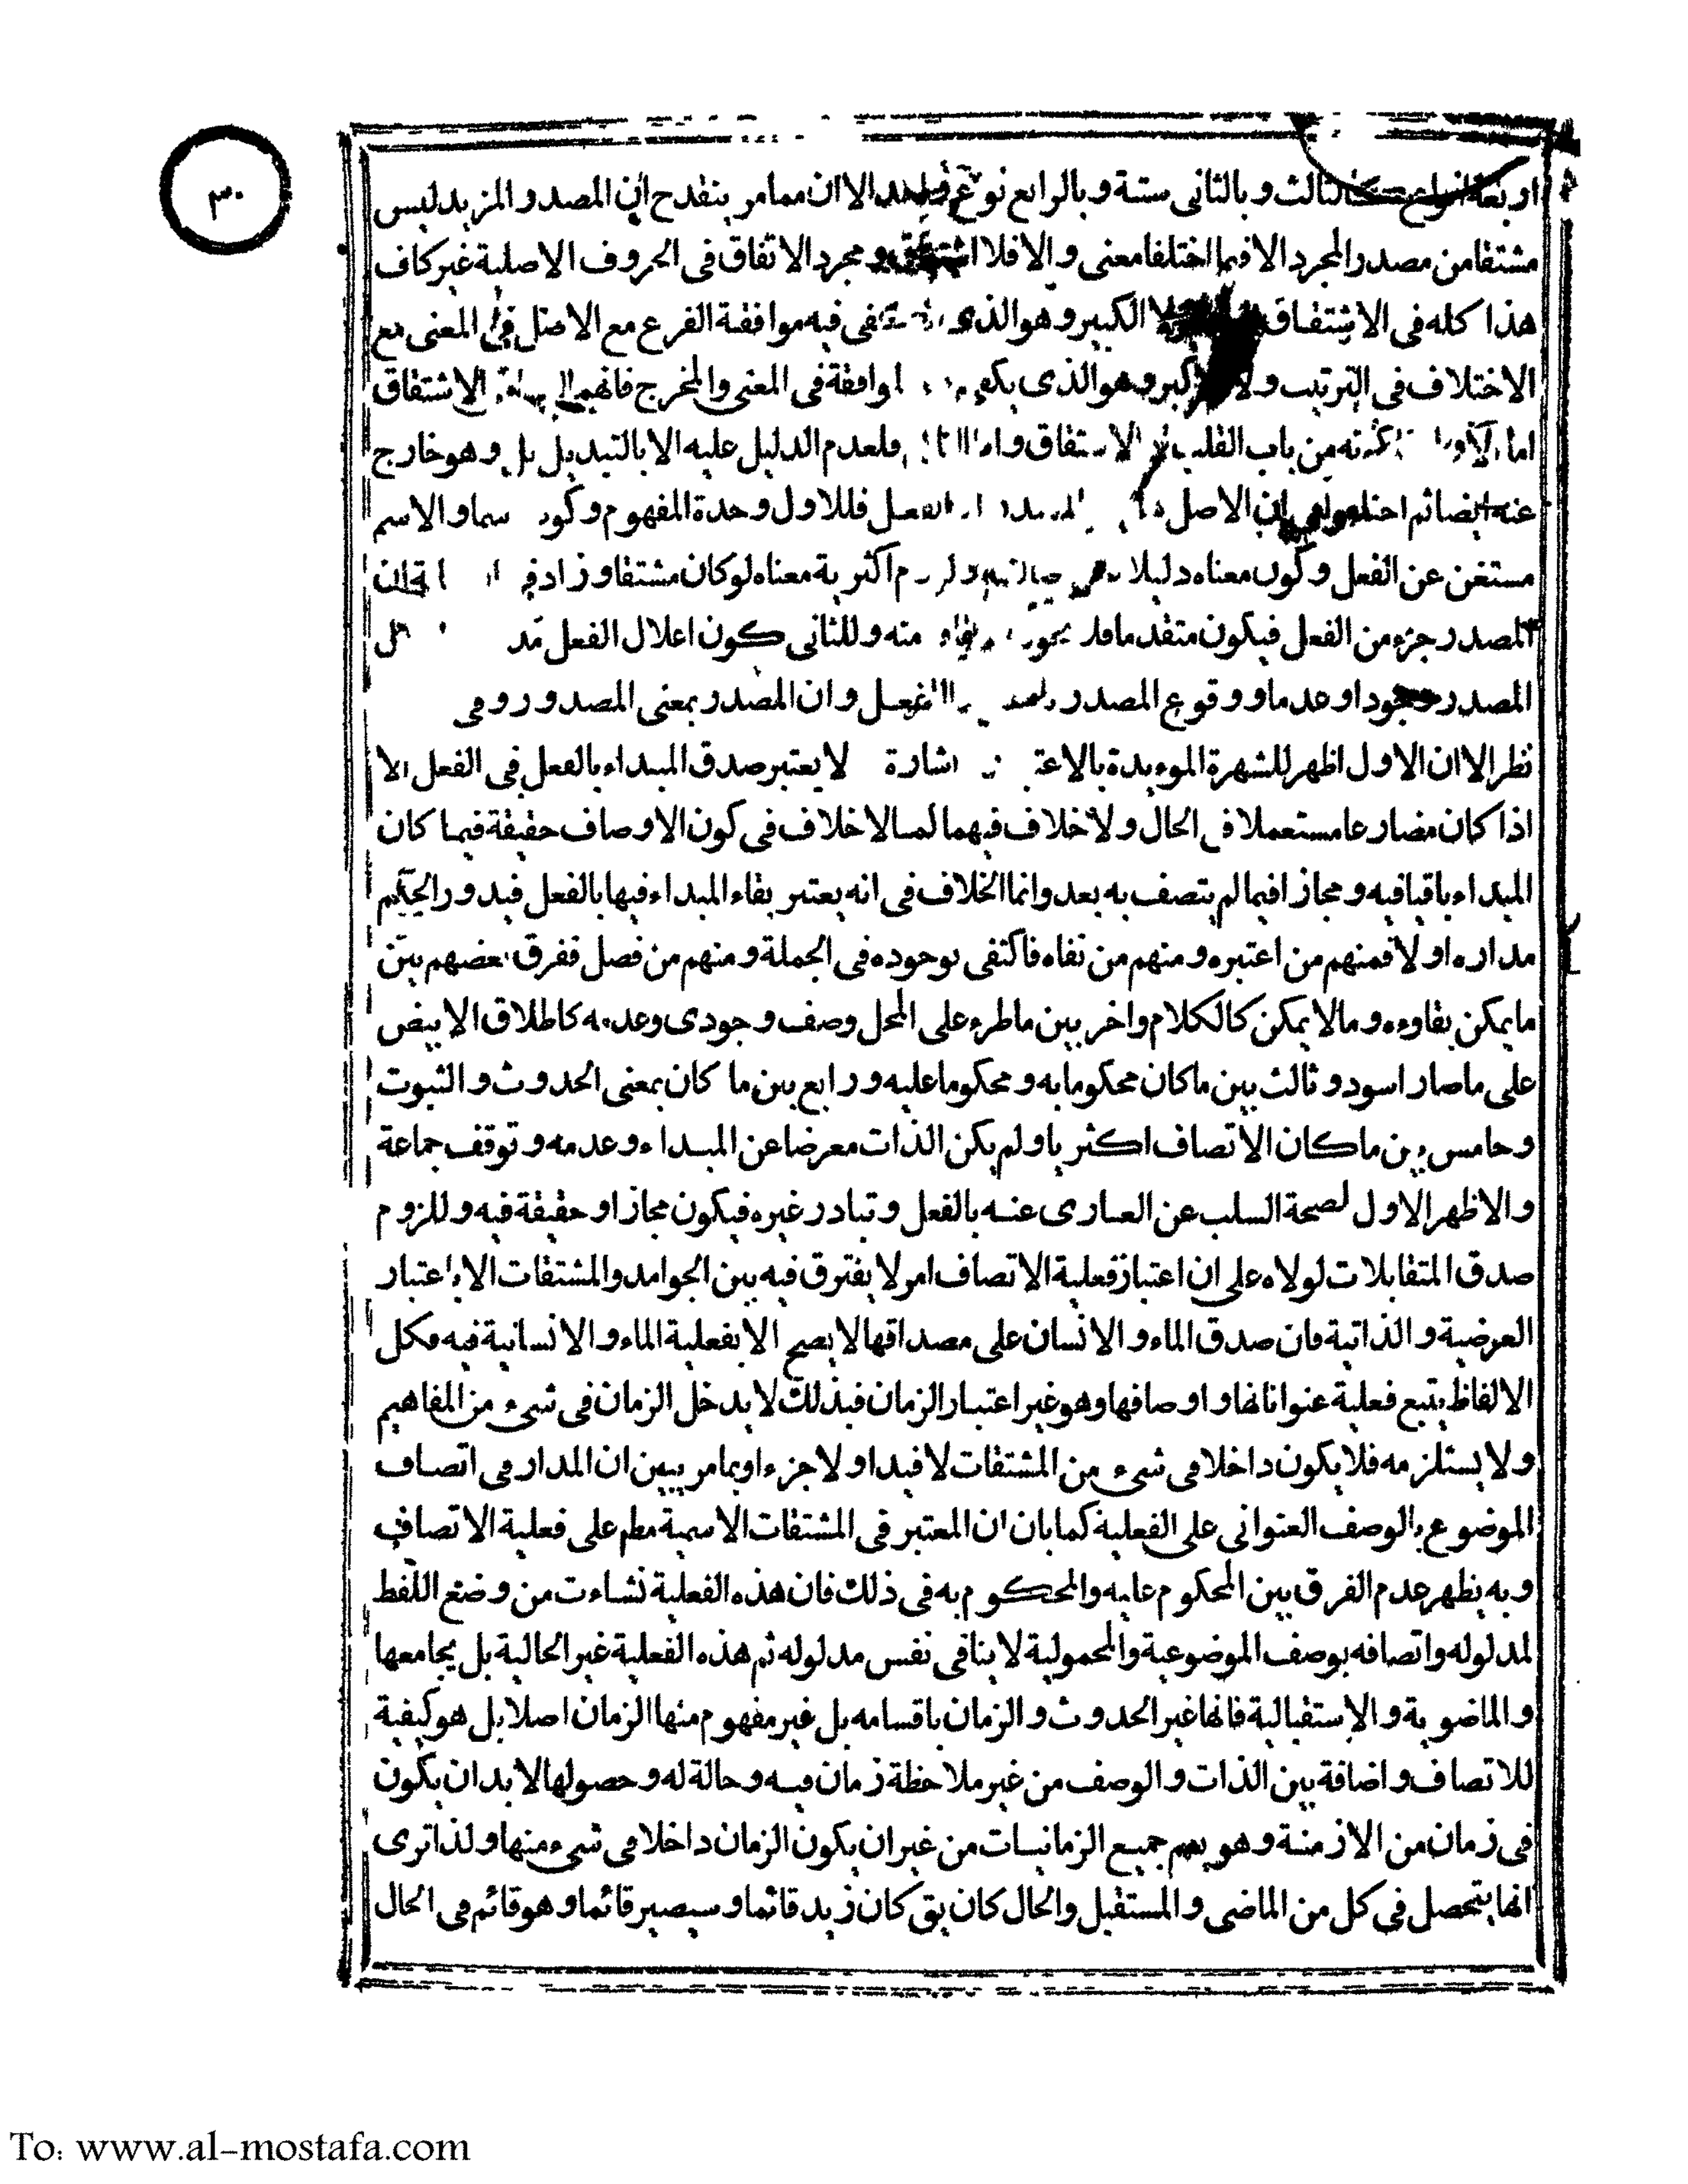 ٣٠
اربعة انواع كالثالث وبالثانى ستة وبالرابع نوع الا ان ممامر ينقدح ان المصدر المزيد ليس
مشتقا من مصدر المجرد الا فيما اختلفا معنى والا فلا اشتقاق ومجرد الاتفاق فى الحروف الاصلية غير كاف
هذا كله فى الاشتقاق الكبير وهو الذى فيه موافقة الفرع مع الاصل فى المعنى مع
الاختلاف فى الترتيب ولا وهو الذى فى المعنى والمخرج فانهم الاشتقاق
اما من باب القلب الاشتقاق فلعدم الدليل عليه الا بالتبديل بل وهو خارج
عنه ايضا ثم ان الاصل الفعل فللاول وحدة المفهوم والاسم
مستغن عن الفعل وكون معناه دليلا اكثرية معناه لو كان مشتقا وزاد
المصدر جزء من الفعل فيكون متقدما فلا منه وللثانى كون اعلال الفعل
المصدر وجودا وعدما ووقوع المصدر وان المصدر بمعنى المصدور وفى
نظر الا ان الاول اظهر للشهرة الموءيدة اشارة لا يعتبر صدق المبداء بالفعل فى الفعل الا
اذا كان مضارعا مستعملا فى الحال ولا خلاف فيهما لما لا خلاف فى كون الاوصاف حقيقة فيما كان
المبداء باقيا فيه ومجازا فيما لم يتصف به بعد وانما الخلاف فى انه يعتبر بقاء المبداء فيها بالفعل فيدور الحكم
مداره او لا فمنهم من اعتبره ومنهم من نفاه فاكتفى بوجوده فى الجملة ومنهم من فصل ففرق بعضهم بين
ما يمكن بقاوءه وما لا يمكن كالكلام واخر بين ما طرء على المحل وصف وجودى وعدمه كاطلاق الابيض
على ما صار اسود وثالث بين ما كان محكوما به ومحكوما عليه ورابع بين ما كان بمعنى الحدوث والثبوت
وخامس بين ما كان الاتصاف اكثريا ولم يكن الذات معرضا عن المبداء وعدمه وتوقف جماعة
والاظهر الاول لصحة السلب عن العارى عنه بالفعل وتبادر غيره فيكون مجازا وحقيقة فيه وللزوم
صدق المتقابلات لولاه على ان اعتبار فعلية الاتصاف امر لا يفترق فيه بين الجوامد والمشتقات الا باعتبار
العرضية والذاتية فان صدق الماء والانسان على مصداقها لا يصح الا بفعلية الماء والانسانية فيه فكل
الالفاظ يتبع فعلية عنواناتها واوصافها وهو غير اعتبار الزمان فبذلك لا يدخل الزمان فى شىء من المفاهيم
ولا يستلزمه فلا يكون داخلا فى شىء من المشتقات لا قيدا ولا جزءا وبما مر يبين ان المدار فى اتصاف
الموضوع بالوصف العنوانى على الفعلية كما بان ان المعتبر فى المشتقات الاسمية مطم على فعلية الاتصاف
وبه يظهر عدم الفرق بين المحكوم عليه والمحكوم به فى ذلك فان هذه الفعلية نشاءت من وضع اللفظ
لمدلوله واتصافه بوصف الموضوعية والمحمولية لا ينافى نفس مدلوله ثم هذه الفعلية غير الحالية بل يجامعها
والماضوية والاستقبالية فانها غير الحدوث والزمان باقسامه بل غير مفهوم منها الزمان اصلا بل هو كيفية
للاتصاف واضافة بين الذات والوصف من غير ملاحظة زمان فيه وحالة له وحصولها لا بد ان يكون
فى زمان من الازمنة وهو يعم جميع الزمانيات من غير ان يكون الزمان داخلا فى شىء منها ولذا ترى
انها يتحصل فى كل من الماضى والمستقبل والحال كان يق كان زيد قائما وسيصير قائما وهو قائم فى الحال
To: www.al-mostafa.com